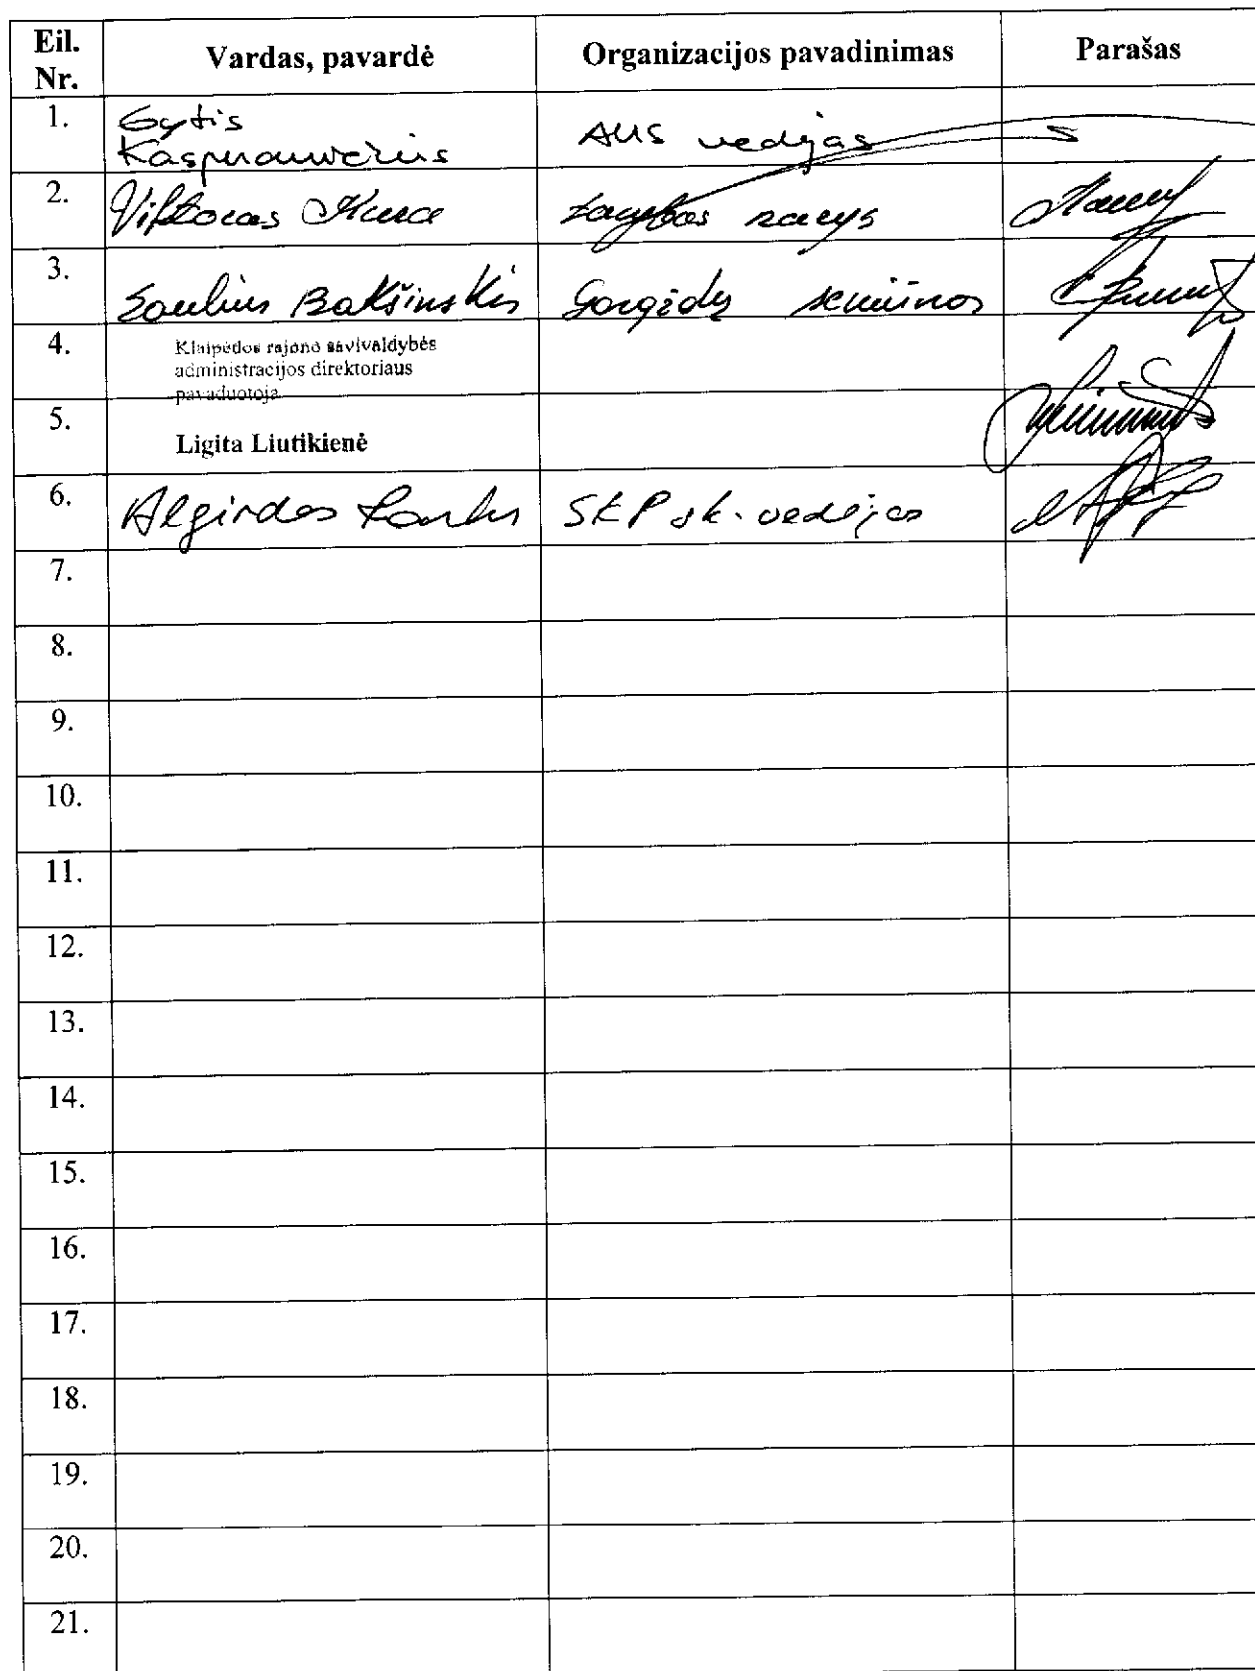 Eil. Nr. Vardas, pavardė Organizacijos pavadinimas Parašas
1. Gytis
Kasperavičius AUS vedėjas
2. Viktoras Kura tarybos narys
3. Saulius Bakšinskis Gargždų seniūnas
4. Klaipėdos rajono savivaldybės
administracijos direktoriaus
pavaduotoja
5. Ligita Liutikienė
6. Algirdas SEP sk. vedėjas
7.
8.
9.
10.
11.
12.
13.
14.
15.
16.
17.
18.
19.
20.
21.